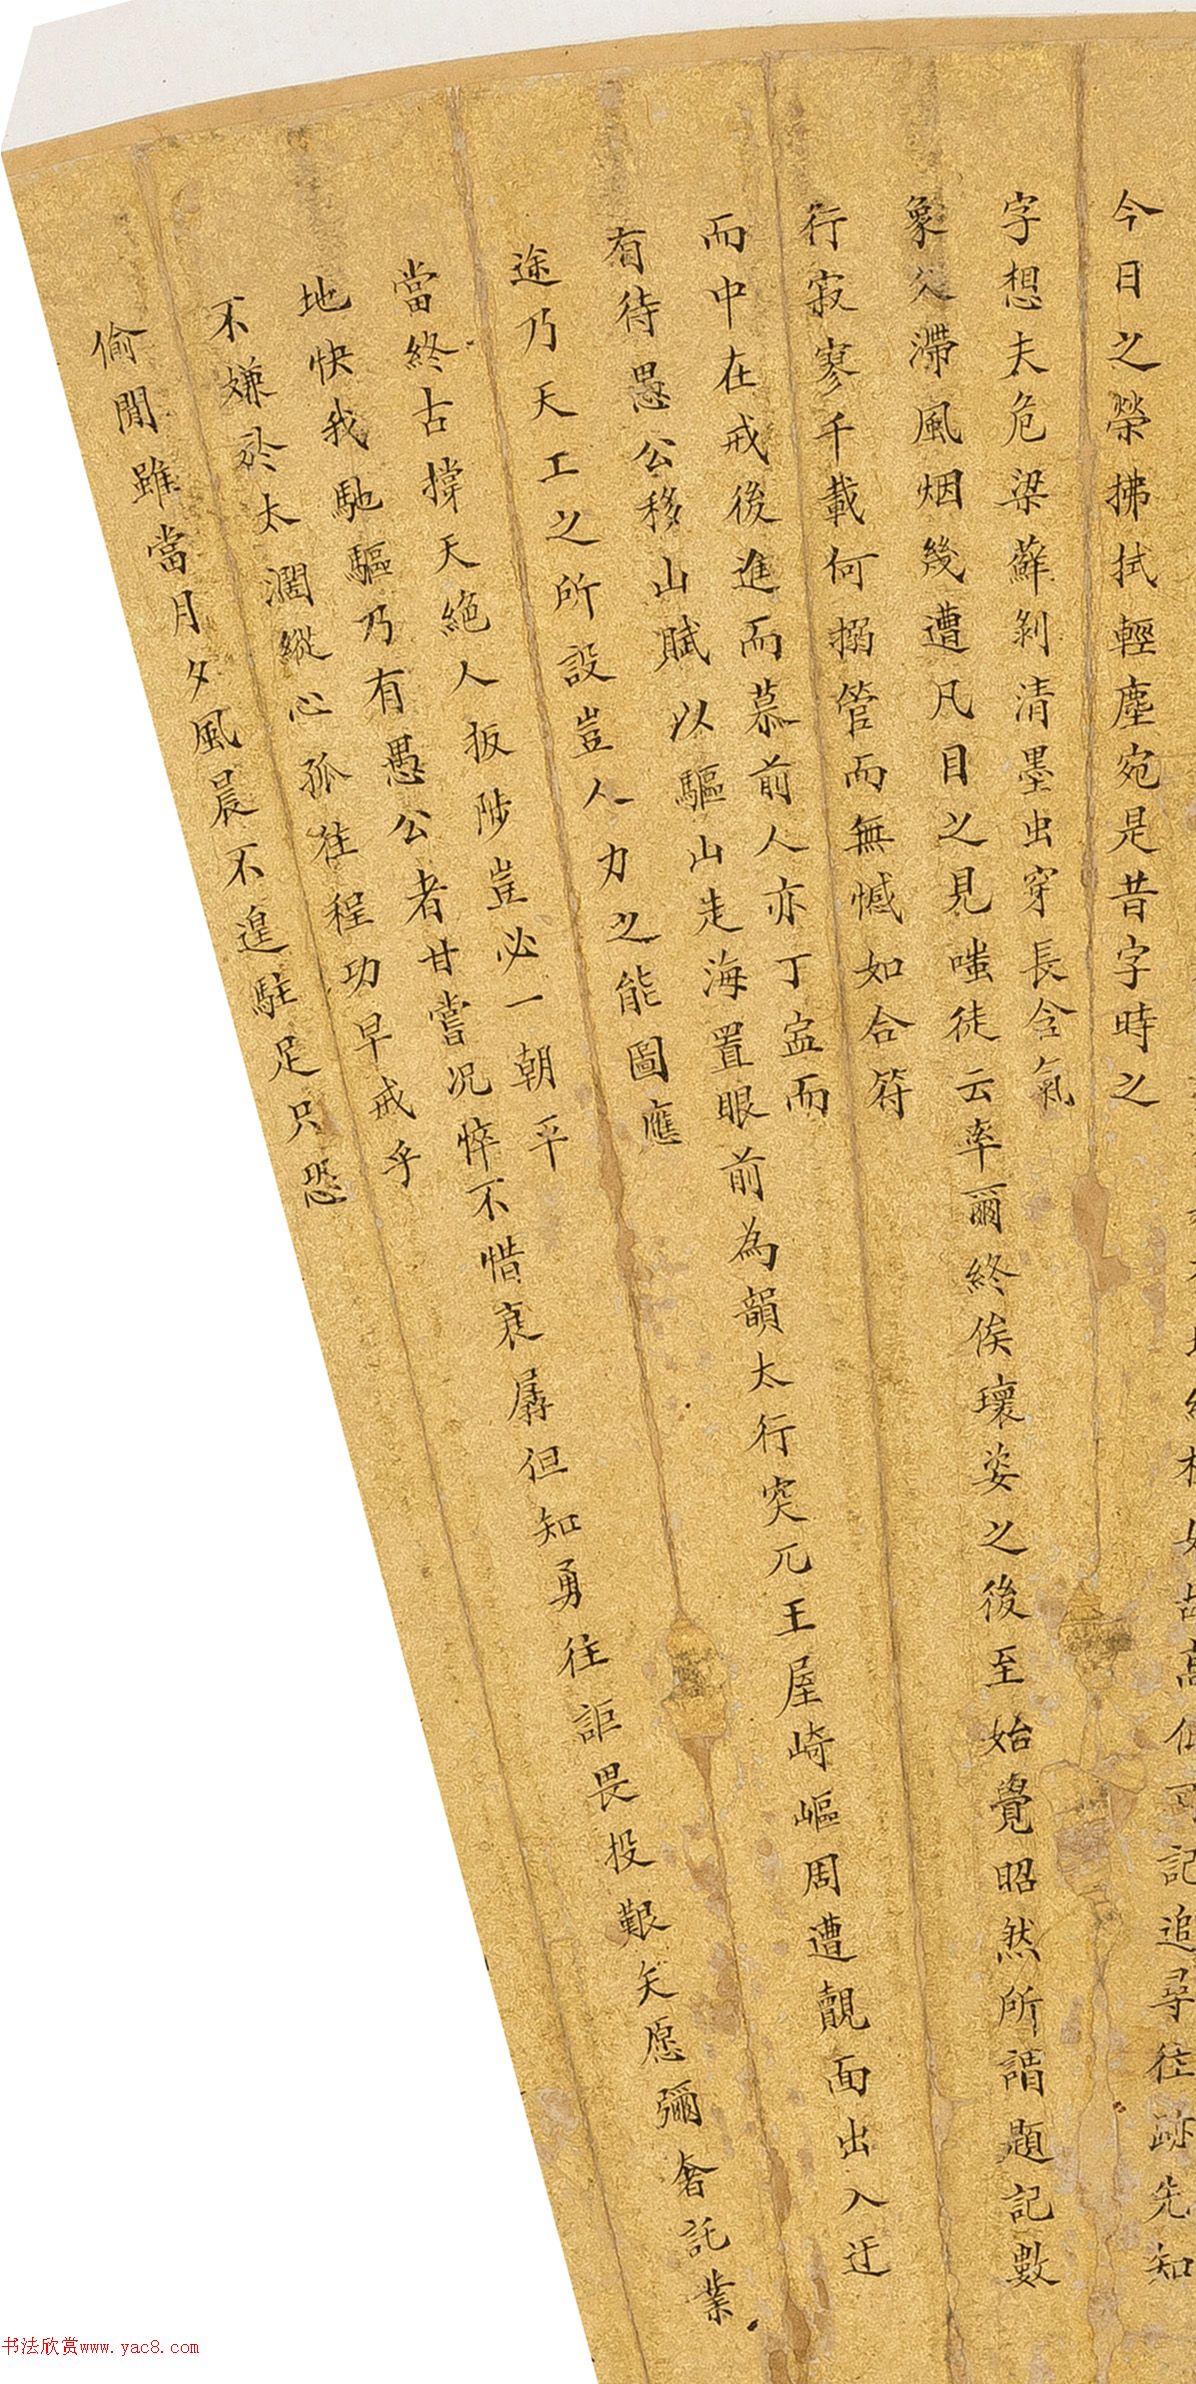 相如故高低可記追尋往跡先知
今日之榮拂拭輕塵宛是昔字時之
字想夫危梁蘚剝清墨虫穿長含氣
象久滯風烟幾遭凡目之見嗤徒云率爾終俟瓌姿之後至始覺昭然所謂題記數
行寂寥千載何搦管而無憾如合符
而中在戒後進而慕前人亦丁寍而
有待愚公移山賦以驅山走海置眼前為韻太行突兀王屋崎嶇周遭覿面出入迂
途乃天工之所設豈人力之能圖應
當終古撐天絕人扳陟豈必一朝平
地快我馳驅乃有愚公者甘嘗况悴不惜衰孱但知勇往詎畏投艱矢愿彌奢託業
不嫌於太濶縱心孤往程功早戒乎
偷閒雖當月夕風晨不遑駐足只恐
书法欣赏www.yac8.com